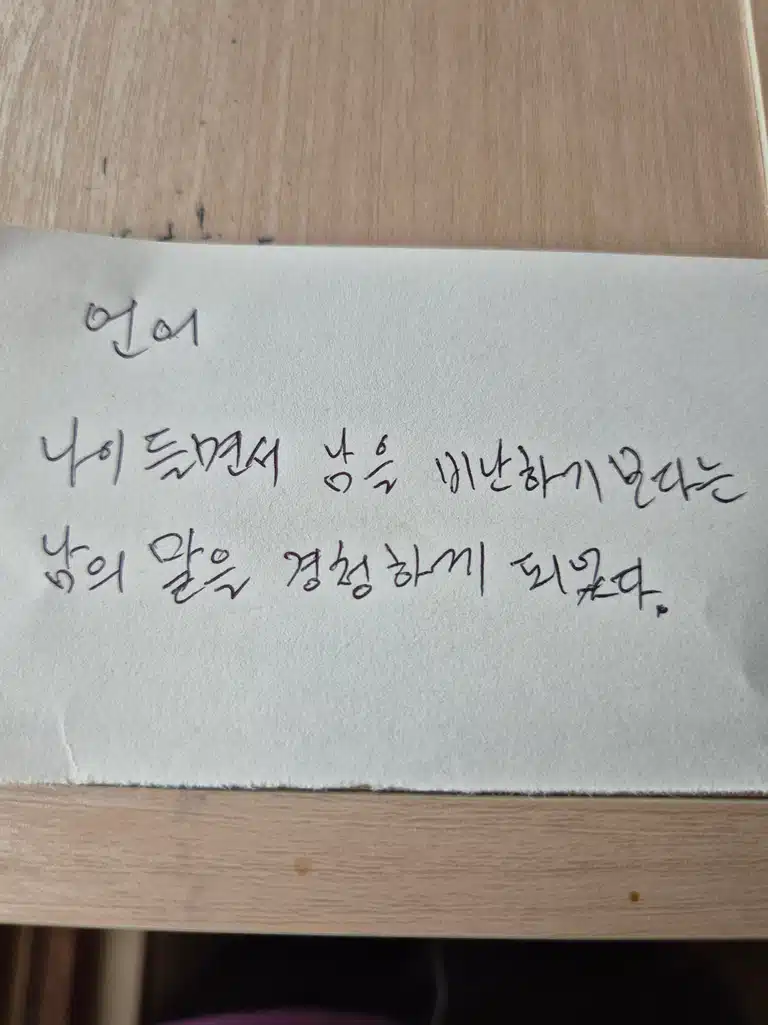 언어
나이 들면서 남을 비난하기 보다는
남의 말을 경청하게 되었다.